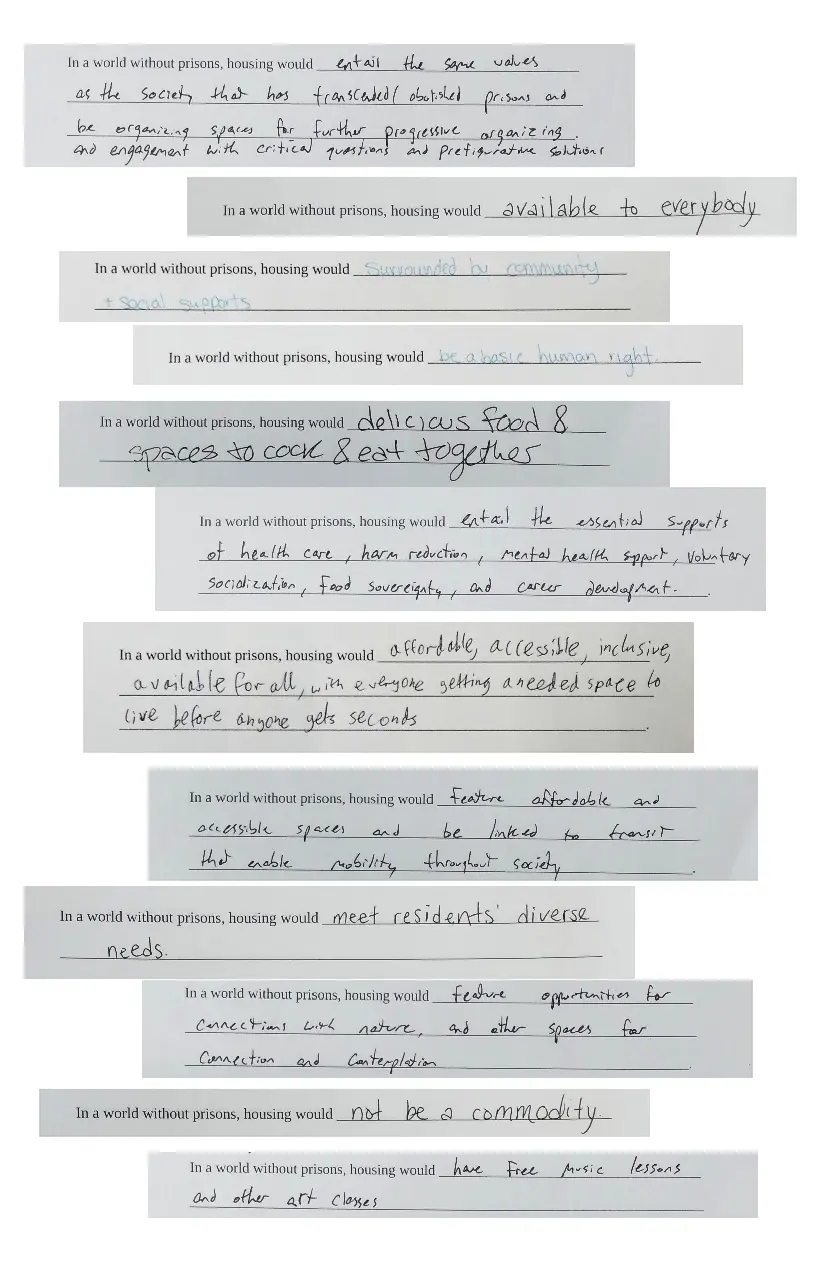 In a world without prisons, housing would entail the same values
as the society that has transcended/abolished prisons and
be organizing spaces for further progressive organizing.
and engagement with critical questions and prefigurative solutions
In a world without prisons, housing would available to everybody
In a world without prisons, housing would Surrounded by community
+ social supports
In a world without prisons, housing would be a basic human right.
In a world without prisons, housing would delicious food &
spaces to cook & eat together
In a world without prisons, housing would entail the essential supports
of health care, harm reduction, mental health support, voluntary
socialization, food sovereignty, and career development.
In a world without prisons, housing would affordable, accessible, inclusive,
available for all, with everyone getting a needed space to
live before anyone gets seconds.
In a world without prisons, housing would feature affordable and
accessible spaces and be linked to transit
that enable mobility throughout society.
In a world without prisons, housing would meet residents' diverse
needs.
In a world without prisons, housing would feature opportunities for
connections with nature, and other spaces for
connection and contemplation.
In a world without prisons, housing would not be a commodity.
In a world without prisons, housing would have free music lessons
and other art classes